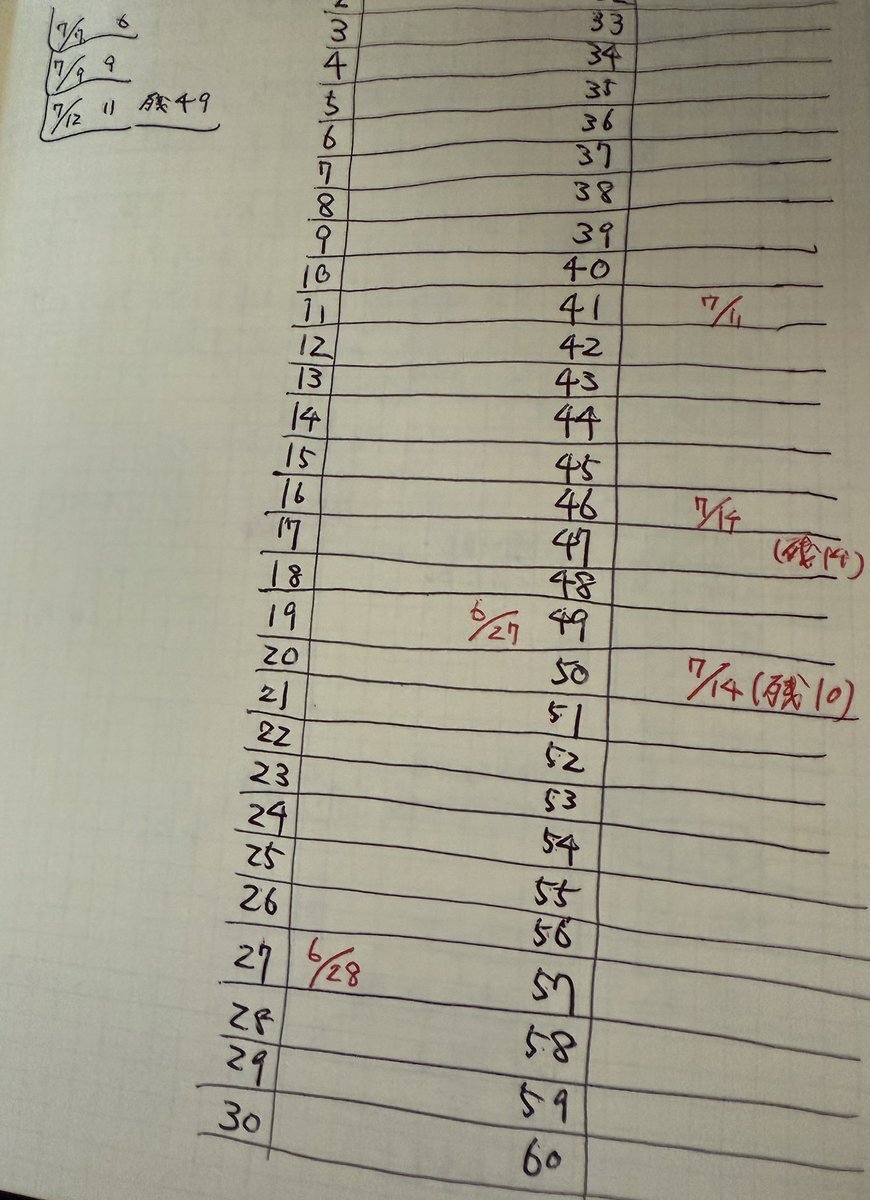 7/7 6
7/9 9
7/12 11 残49
2
3 33
4 34
5 35
6 36
7 37
8 38
9 39
10 40
11 41 7/11
12 42
13 43
14 44
15 45
16 46 7/14
17 47 (残14)
18 48
19 6/27 49
20 50 7/14 (残10)
21 51
22 52
23 53
24 54
25 55
26 56
27 6/28 57
28 58
29 59
30 60